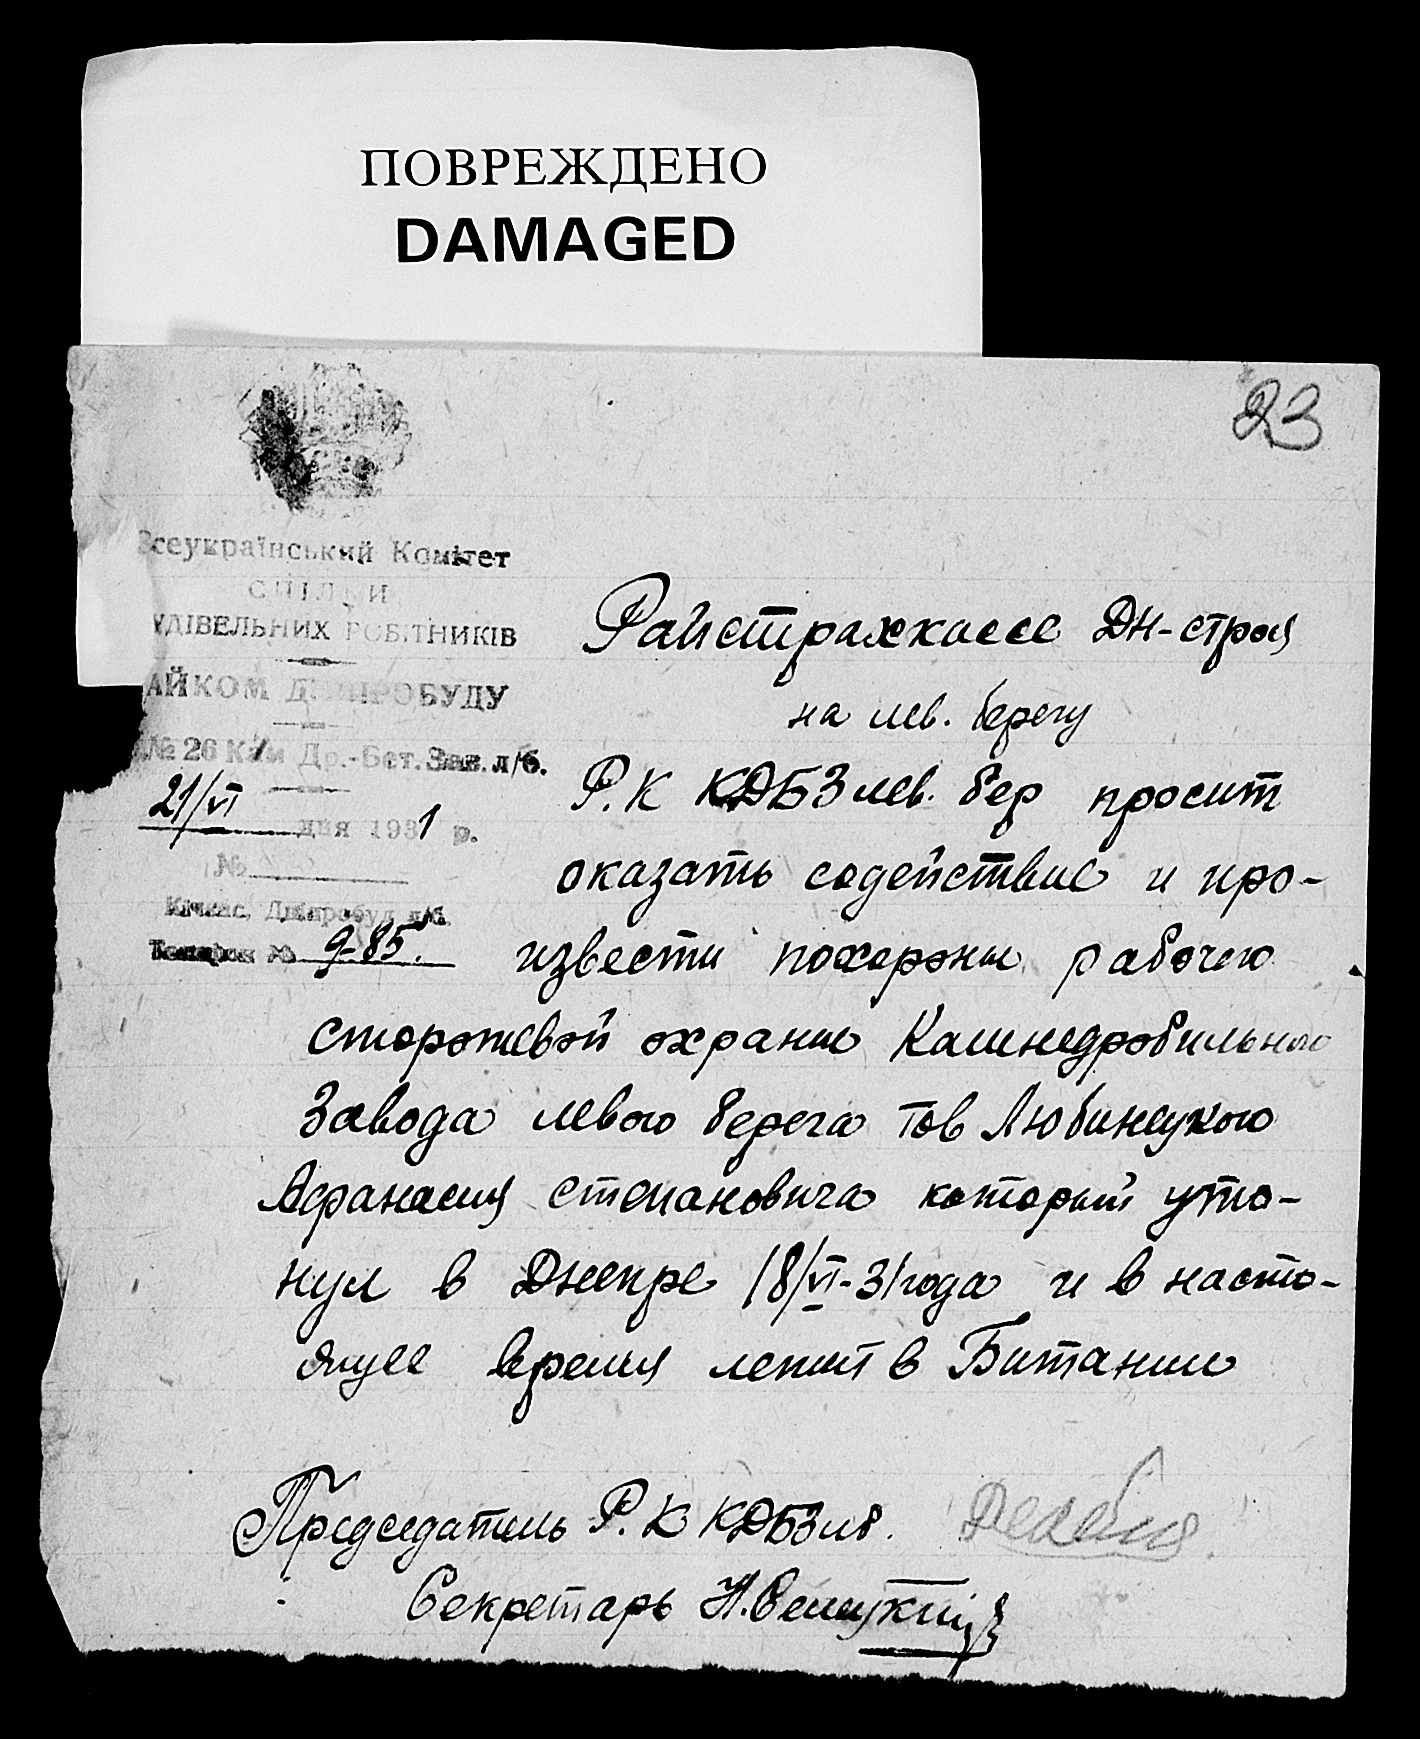 ПОВРЕЖДЕНО
DAMAGED
23
Всеукраїнський Комітет
СПІЛКИ
УДІВЕЛЬНИХ РОБІТНИКІВ
АЙКОМ ДНІПРОБУДУ
№ 26 Кам Др.-Бет. Зав. л/б.
21/VI дня 1931 р.
№
Кічкас, Дніпробуд л/б.
Телефон № 9-85.
Райстрахкассе Дн-строя
на лев. берегу
Р.К КДБЗ лев. бер просит
оказать содействие и про-
извести похороны рабочего
сторожевой охраны Камнедробильного
Завода левого берега тов Любинецкого
Афанасия степановича который уто-
нул в Днепре 18/VI-31 года и в насто-
ящее время лежит в Битании
Председатель Р.К КДБЗ лб.
Секретарь Н.